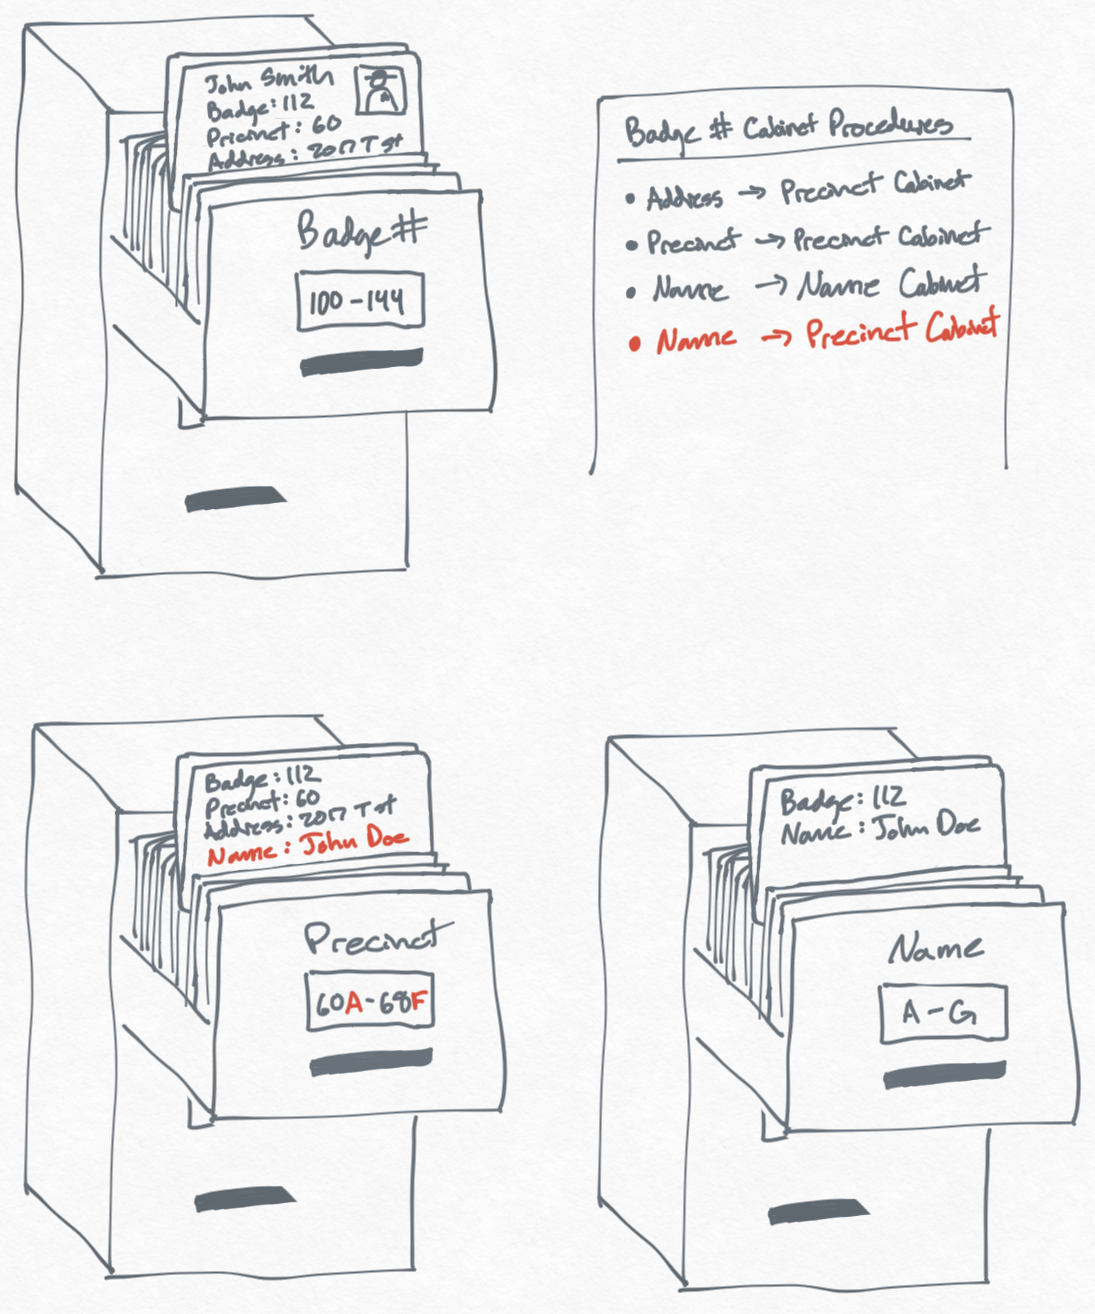 John Smith
Badge: 112
Pricinct: 60
Address: 2017 T st
Badge #
100-144
Badge # Cabinet Procedures
• Address → Precinct Cabinet
• Precinct → Precinct Cabinet
• Name → Name Cabinet
• Name → Precinct Cabinet
Badge: 112
Precinct: 60
Address: 2017 T st
Name: John Doe
Precinct
60A-68F
Badge: 112
Name: John Doe
Name
A-G